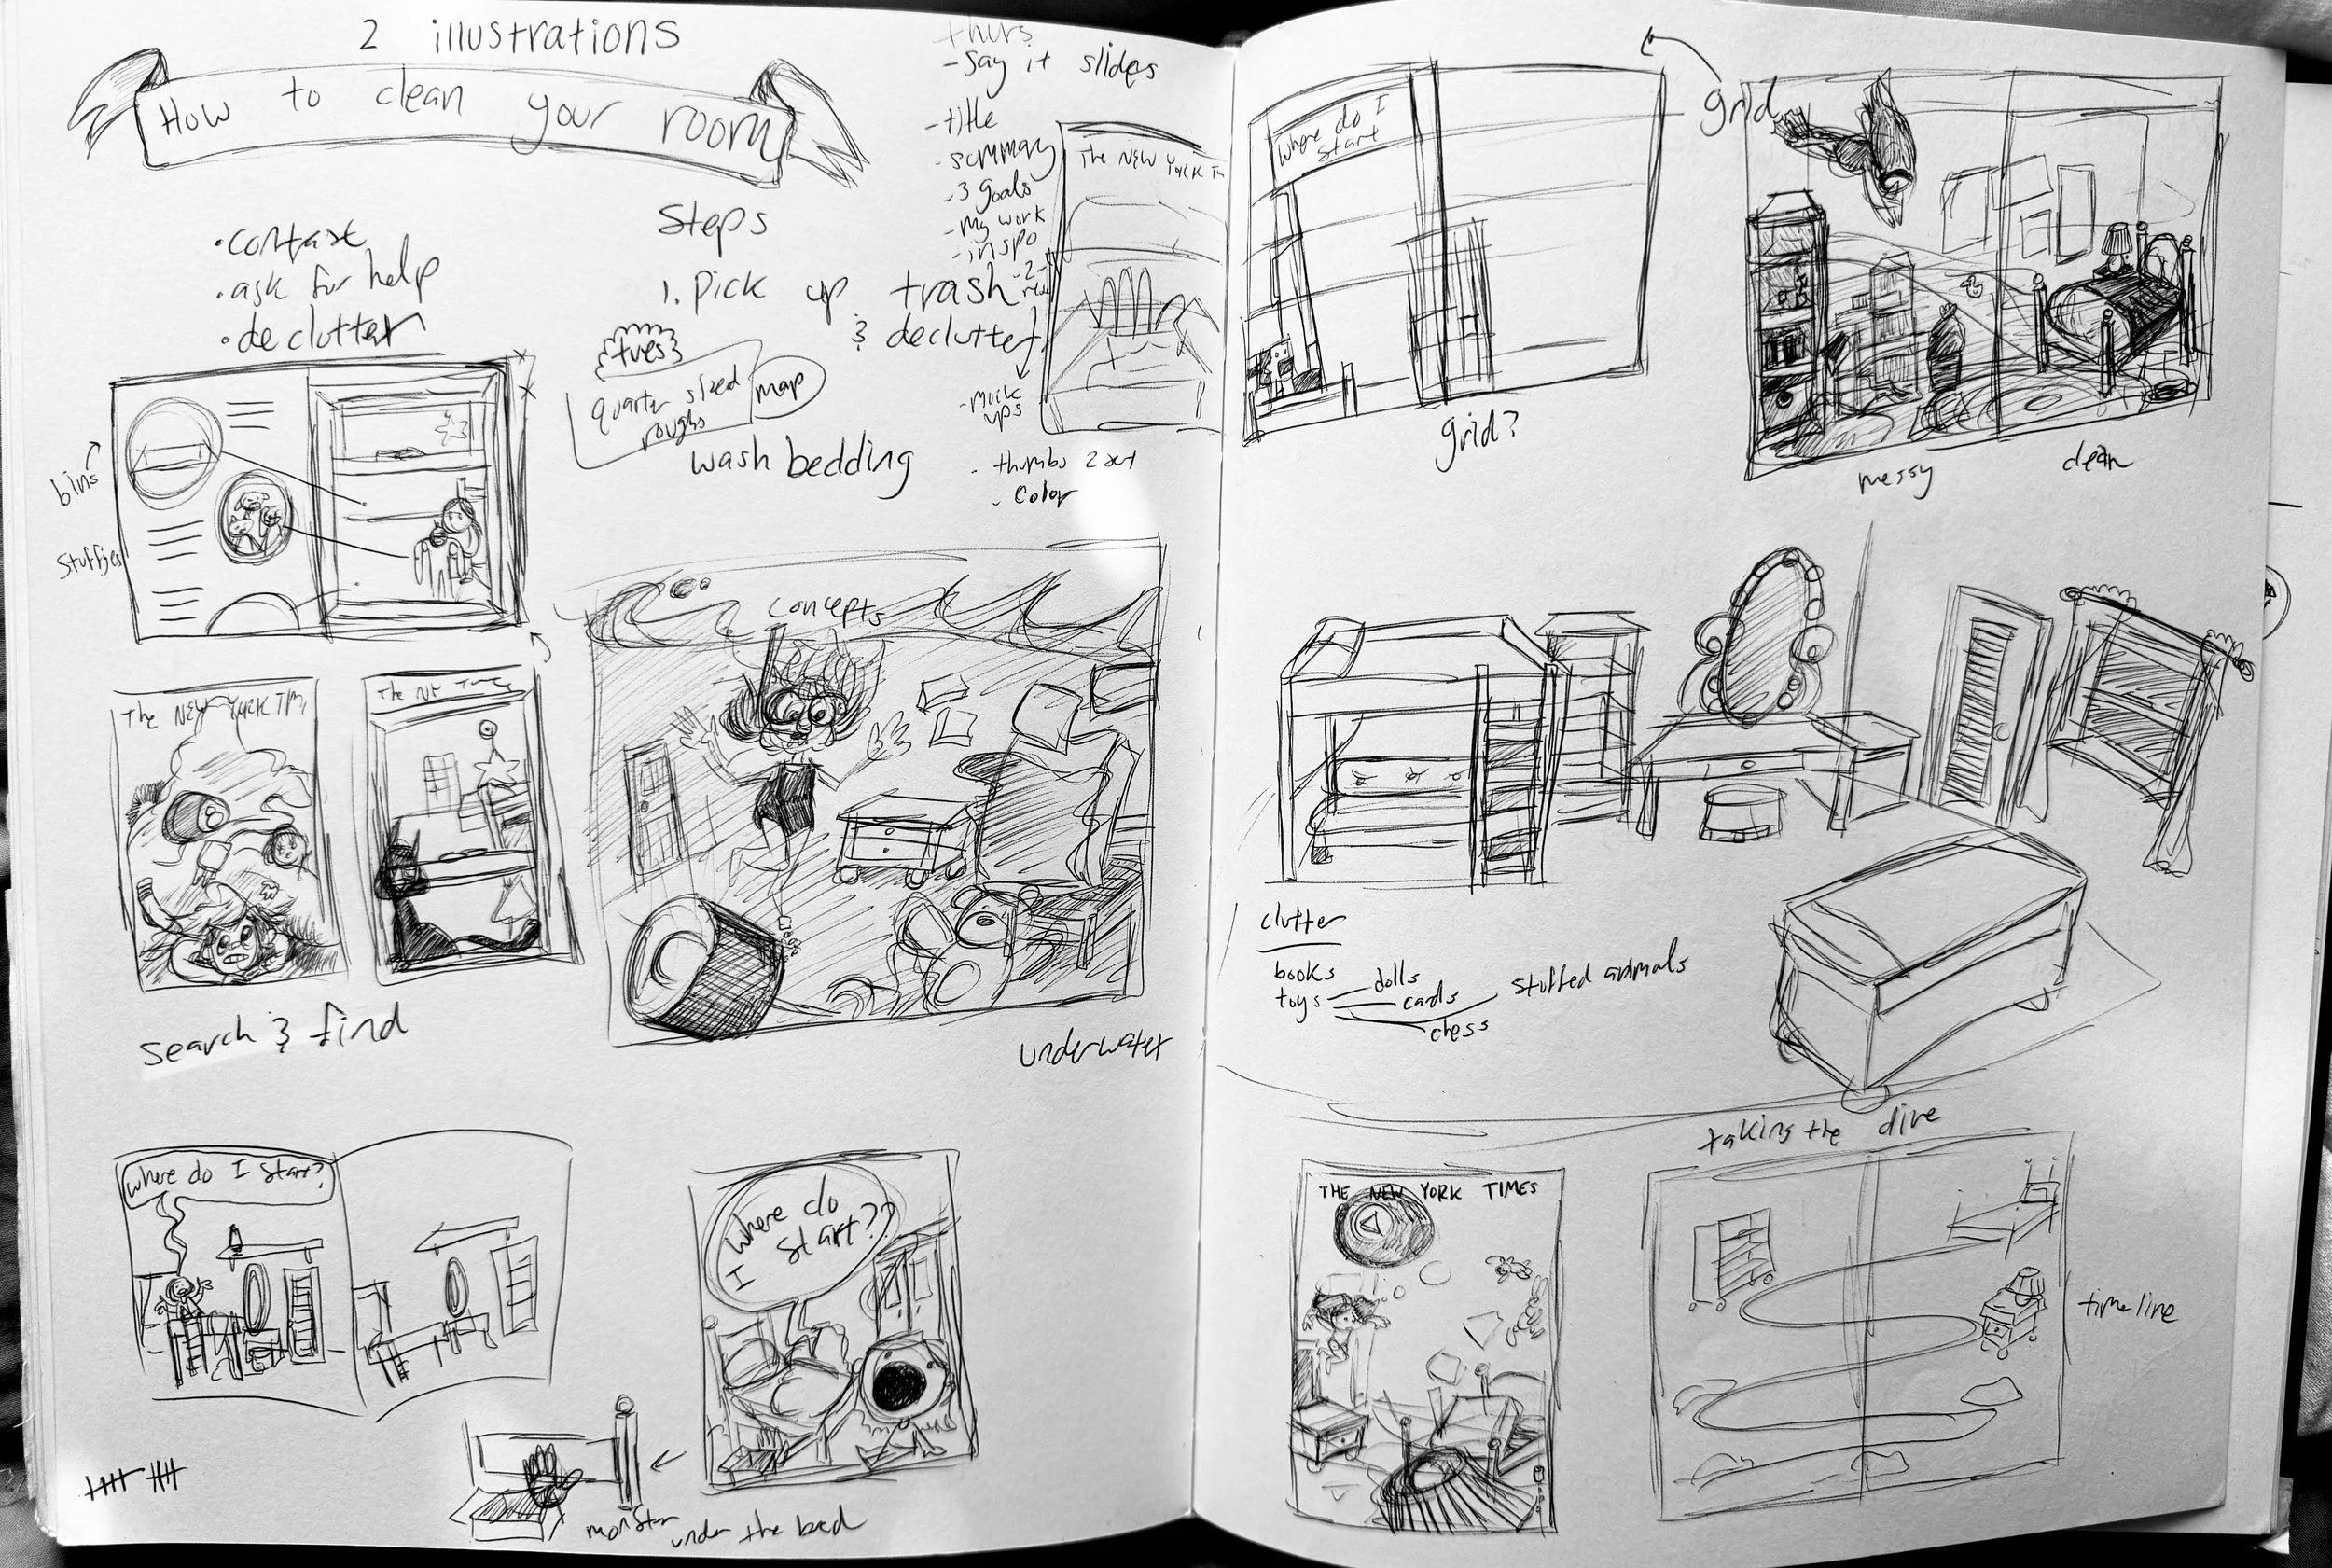 2 illustrations
How to clean your room
• contrast
• ask for help
• declutter
Steps
1. Pick up trash
& declutter
tues
quarter sized
roughs
map
wash bedding
thurs
- say it slides
- title
- summary
- 3 goals
- my work
- inspo
- mock
ups
• thumbs 2 set
• color
The New York Ti
bins
stuffies
The New York Tim
The NY Times
search & find
concepts
underwater
Where do I start?
Where do
I start??
monster under the bed
Where do I
start
grid?
grid
messy
clean
clutter
books
toys
dolls
cards
chess
stuffed animals
taking the dive
THE NEW YORK TIMES
timeline